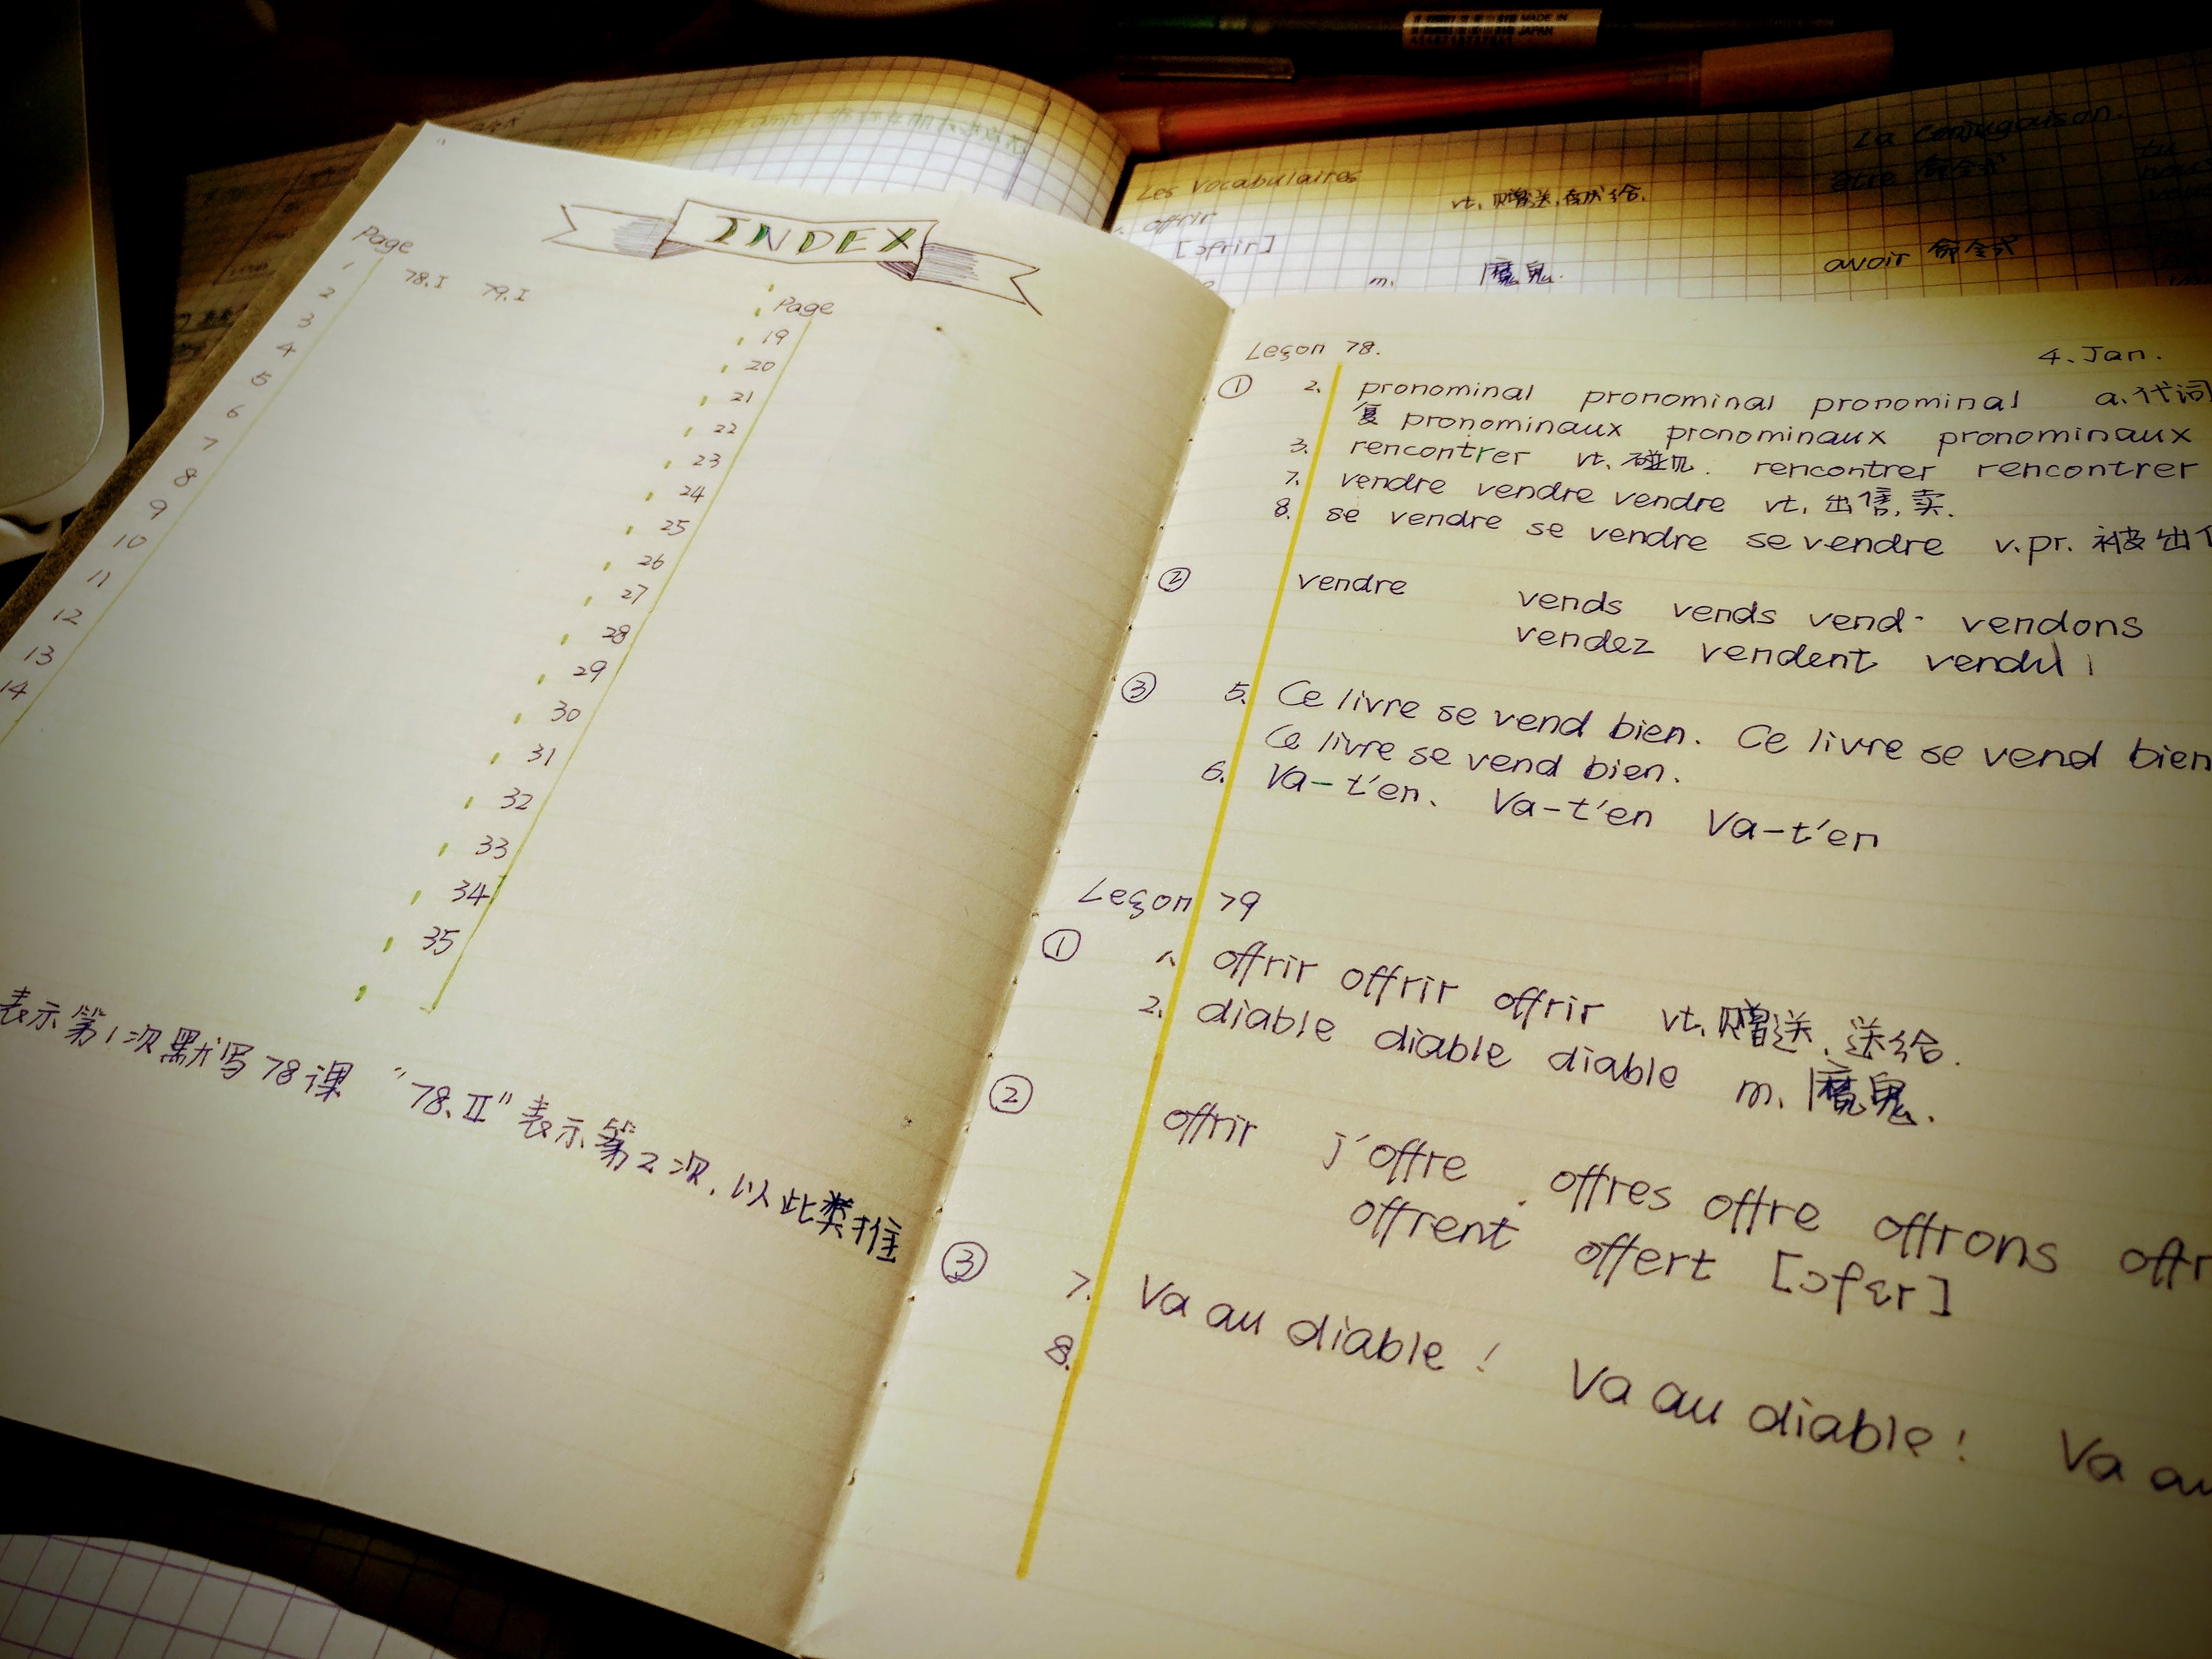 INDEX
Page
1 78.I 79.I
2
3
4
5
6
7
8
9
10
11
12
13
14
Page
19
20
21
22
23
24
25
26
27
28
29
30
31
32
33
34
35
表示第1次默写78课 "78.II"表示第2次,以此类推
Les Vocabulaires
offrir vt.赠送,
[ɔfrir]
m. 魔鬼.
La conjugaison.
être 命令式
avoir 命令式
MADE IN
JAPAN
Leçon 78. 4. Jan.
① 2. pronominal pronominal pronominal a.代词
复 pronominaux pronominaux pronominaux
3. rencontrer vt. 碰见. rencontrer rencontrer
7. vendre vendre vendre vt. 出售,卖.
8. se vendre se vendre se vendre v.pr. 被出
② vendre vends vends vend vendons
vendez vendent vendu
③ 5. Ce livre se vend bien. Ce livre se vend bien
Ce livre se vend bien.
6. Va-t'en. Va-t'en Va-t'en
Leçon 79
① 1. offrir offrir offrir vt.赠送,送给.
2. diable diable diable m. 魔鬼.
② offrir j'offre offres offre offrons offr
offrent offert [ɔfɛr]
③ 7. Va au diable! Va au diable! Va au
8.